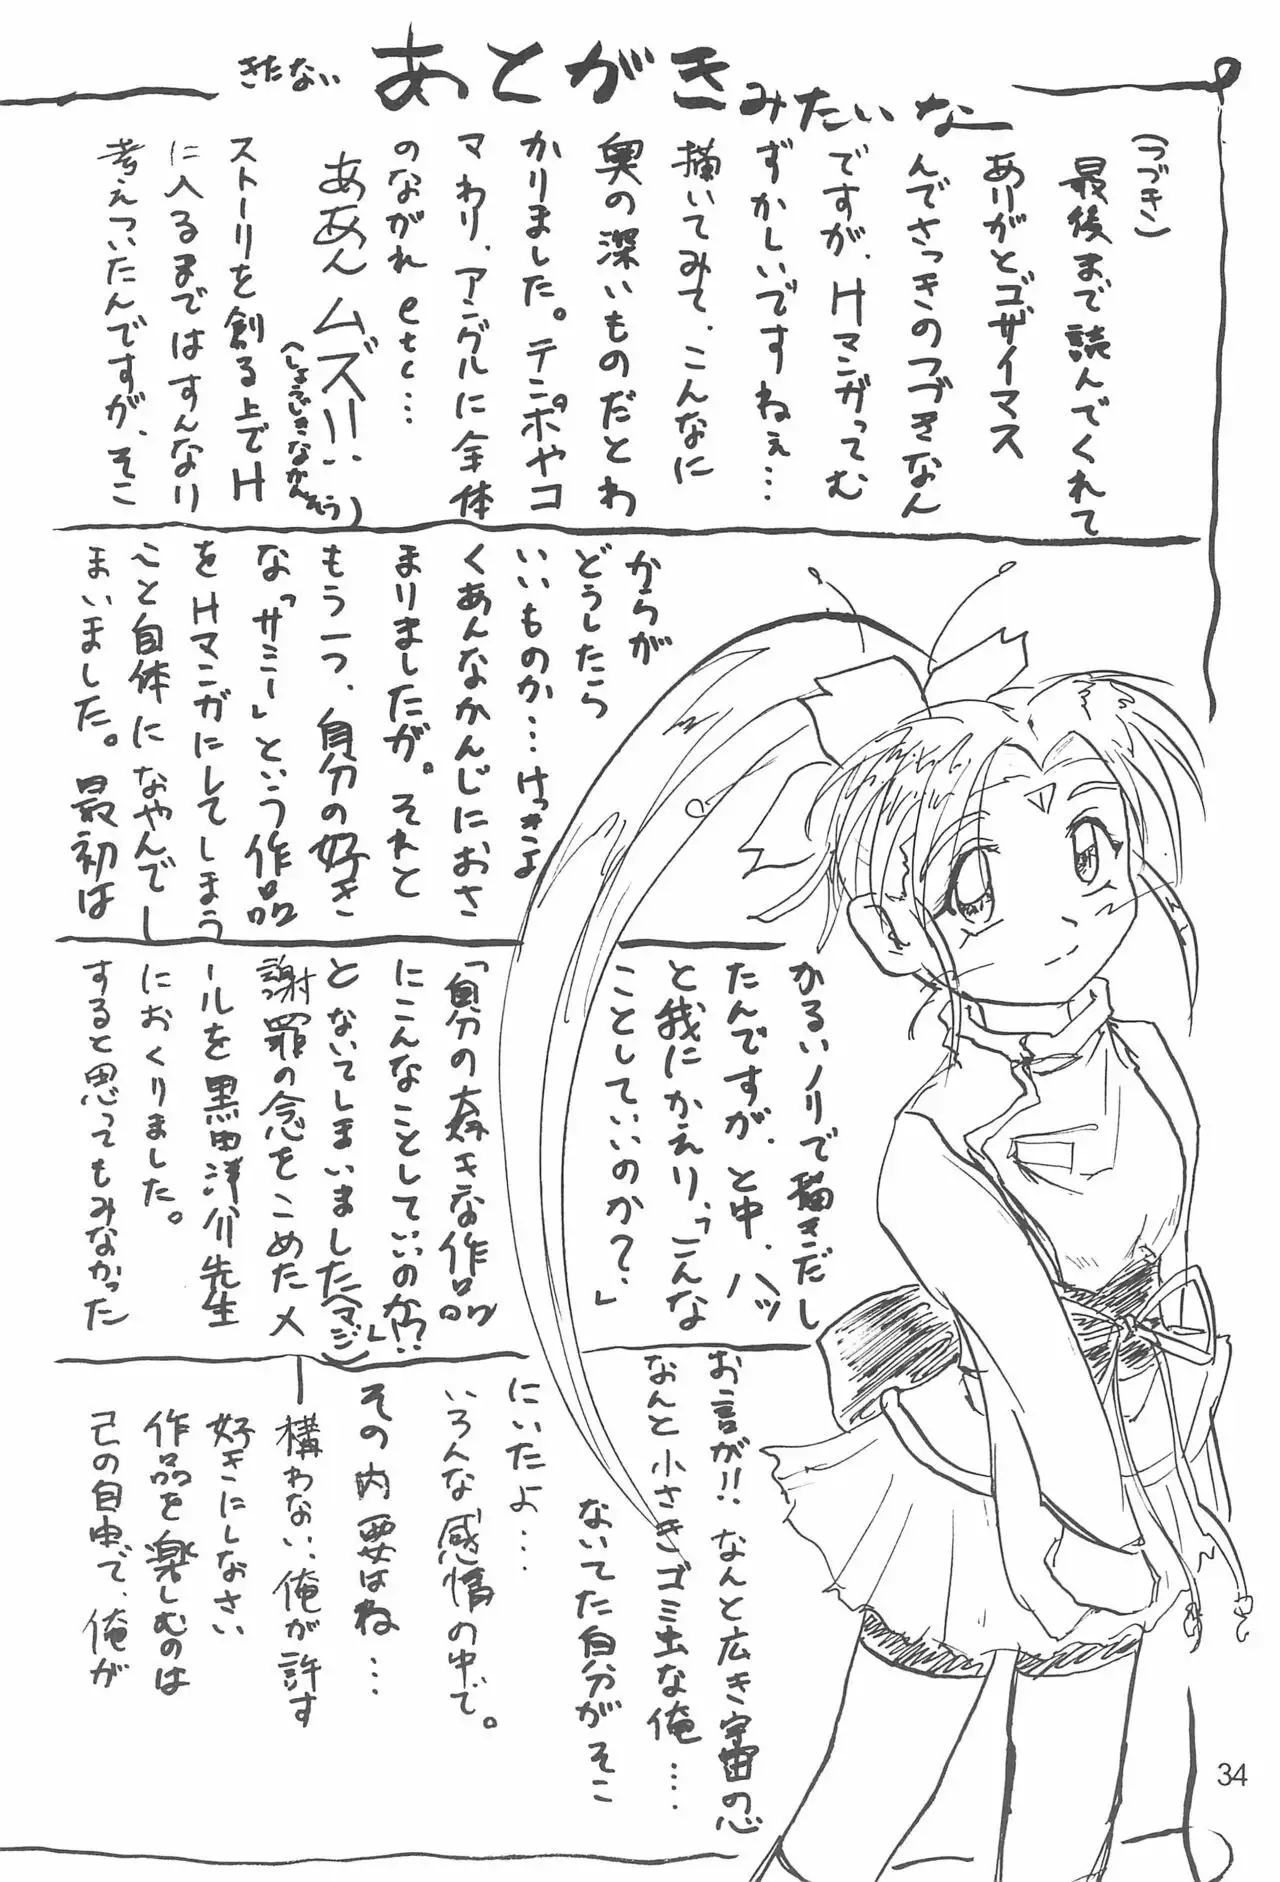 きたない あとがき みたいな
(つづき)
最後まで読んでくれて
ありがとゴザイマス
んでさっきのつづきなん
ですが、Hマンガってむ
ずかしいですねぇ…
描いてみて、こんなに
奥の深いものだとわ
かりました。テンポやコ
マわり、アングルに全体
のながれetc…
ああん ムズー!!
(しょうじきなかんそう)
ストーリを創る上でH
に入るまではすんなり
考えついたんですが、そこ
からが
どうしたら
いいものか…けっきょ
くあんなかんじにおさ
まりましたが。それと
もう一つ、自分の好き
な「サミー」という作品
をHマンガにしてしまう
こと自体になやんでし
まいました。最初は
かるいノリで描きだし
たんですが、と中、ハッ
と我にかえり、「こんな
ことしていいのか?」
「自分の大好きな作品
にこんなことしていいのか!?」
とないてしまいました(マジ)
謝罪の念をこめたメ
ールを黒田洋介先生
におくりました。
すると思ってもみなかった
お言が!! なんと広き宇宙の心
なんと小さきゴミ虫な俺…
ないてた自分がそこ
にいたよ…
いろんな感情の中で。
その内要はね…
ー構わない、俺が許す
好きにしなさい
作品を楽しむのは
己の自由で、俺が
34